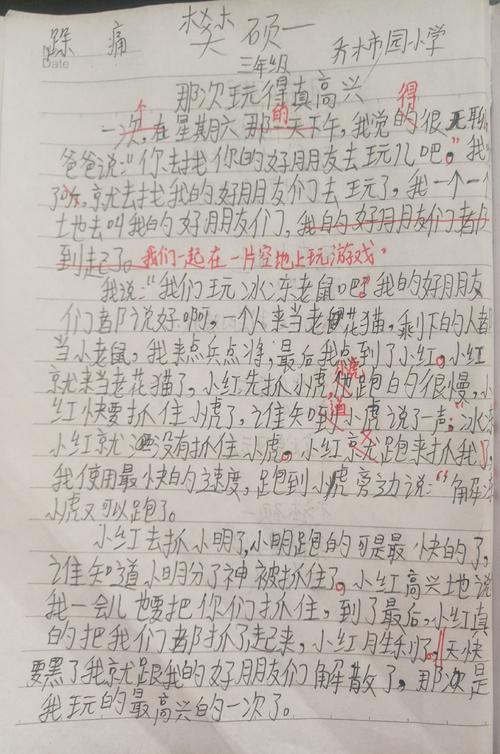 踩 痛 樊硕一 乔木市园小学
Date
三年级
那次玩得真高兴
一次,在星期六那的一天下午,我说的得很无聊
爸爸说:“你去找你的好朋友去玩儿吧。”我
了口,就去找我的好朋友们去玩了,我一个一个
土地去叫我的好朋友们,我的好朋友们都
到起了。我们一起在一片空地上玩游戏。
我说:“我们玩冰冻老鼠吧”我的好朋友
们都说好啊,一个人来当老花猫,剩下的人都
当小老鼠,我来点兵点将,最后我点到了小红。小红
就来当老花猫了,小红先抓小虎,小虎他跑的很慢,小
红快要抓住小虎了,谁知到道小虎说了声:“冰冻
小红就没有抓住小虎。小红就又跑来抓我了,
我使用最快的速度,跑到小虎旁边说:“解冻
小虎又可以跑了。
小红去抓小明了,小明跑的可是最快的了,
谁知道小明分了神被抓住了。小红高兴地说
我一会儿也要把你们抓住,到了最后,小红真
的把我们都抓了起来,小红月生利了。天快
要黑了我就跟我的好朋友们解散了,那次是
我玩的最高兴的一次了。